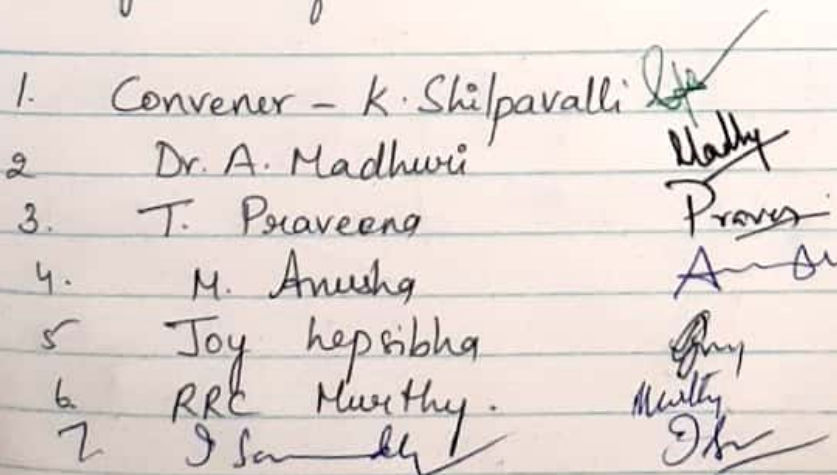 1. Convener - K. Shilpavalli
2 Dr. A. Madhuri Madhy
3. T. Praveena Praveen
4. M. Anusha
5 Joy hepsibha Joy
6. RRC Murthy. Murthy
7